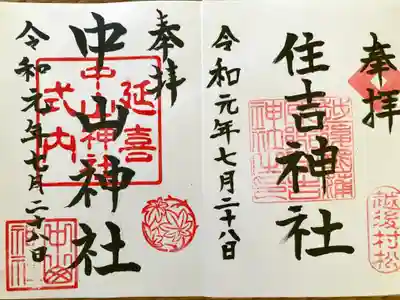 奉拝
住吉神社
令和元年七月二十八日
越後村松
奉拝
中山神社
令和元年七月二十八日
延喜
式内
中山神社